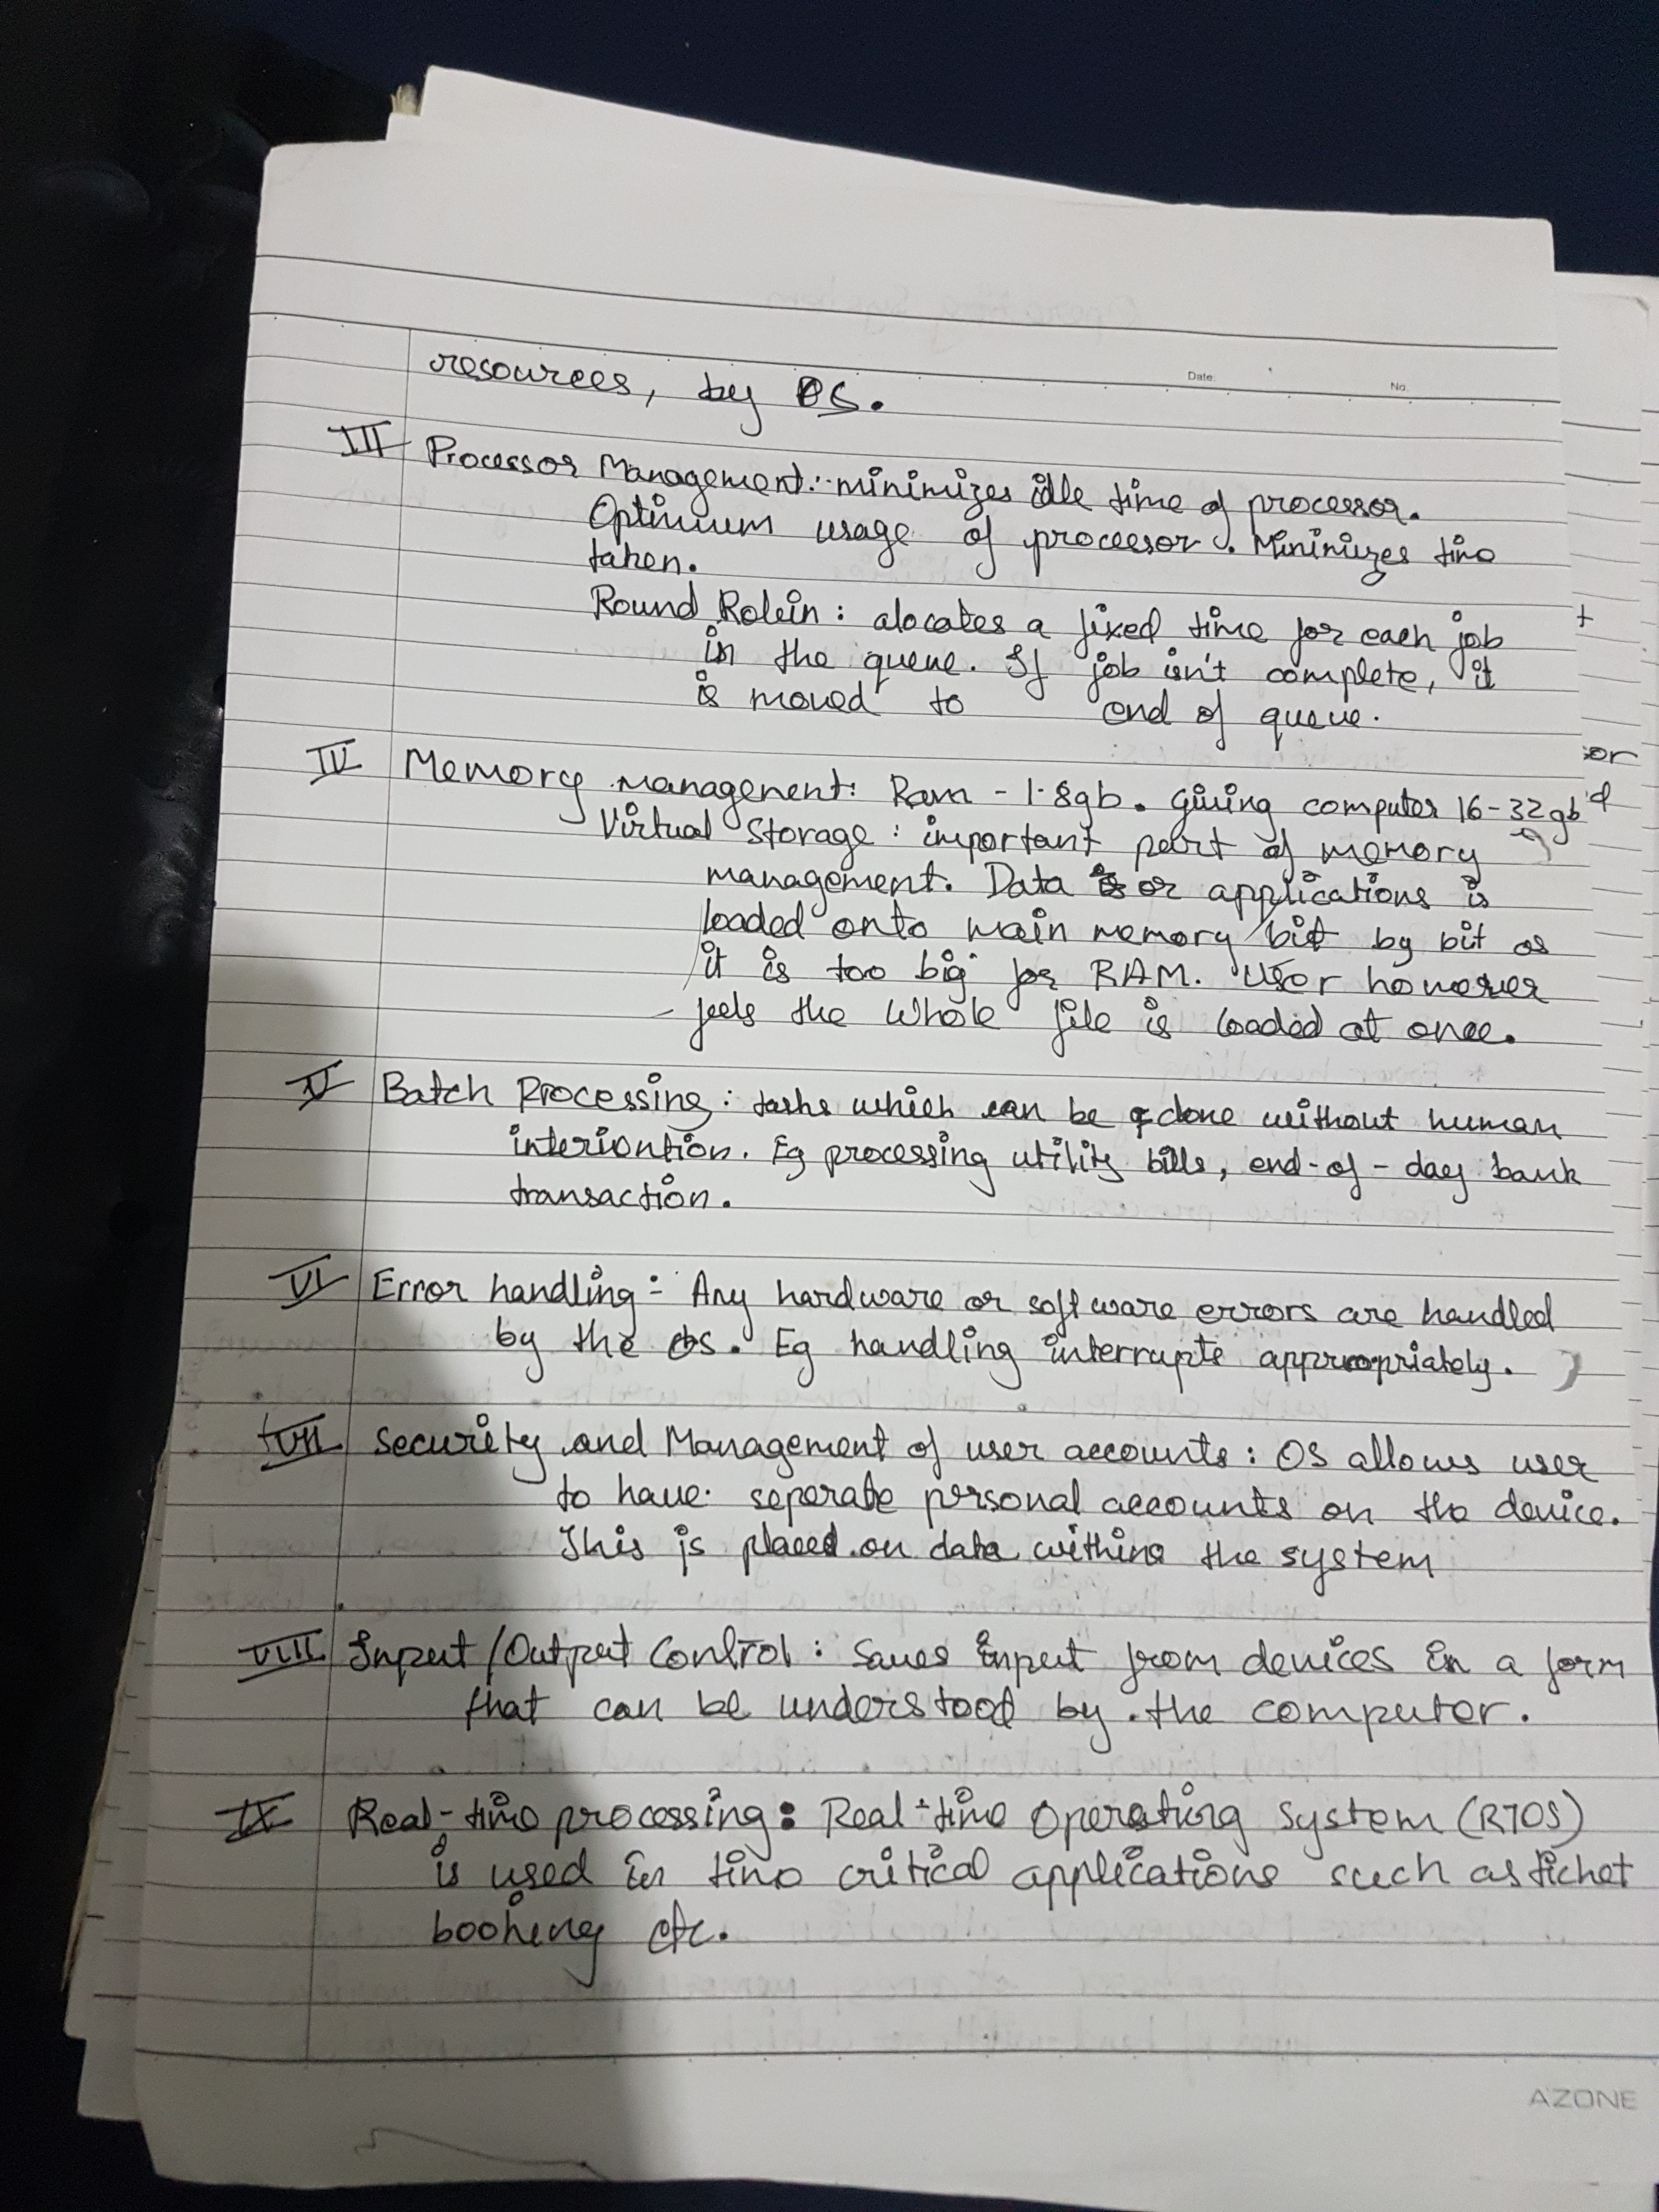 Date:
No.
resources, by OS.
III Processor Management:- minimizes idle time of processor.
Optimum usage of processor. Minimizes time
taken.
Round Robin : alocates a fixed time for each job
in the queue. If job isn't complete, it
is moved to end of queue.
IV Memory management: Ram - 1.8gb. Giving computer 16-32gb
Virtual Storage : important part of memory
management. Data or applications is
loaded onto main memory bit by bit as
it is too big for RAM. User however
feels the whole file is loaded at once.
V Batch Processing : tasks which can be done without human
interiontion. Eg processing utility bills, end-of-day bank
transaction.
VI Error handling - Any hardware or software errors are handled
by the OS. Eg handling interrupts appropriately.
VII Security and Management of user accounts : OS allows user
to have seperate personal accounts on the device.
This is placed on data within the system
VIII Input/Output Control : Saves input from devices in a form
that can be understood by the computer.
IX Real-time processing : Real-time Operating System (RTOS)
is used in time critical applications such as ticket
booking etc.
AZONE